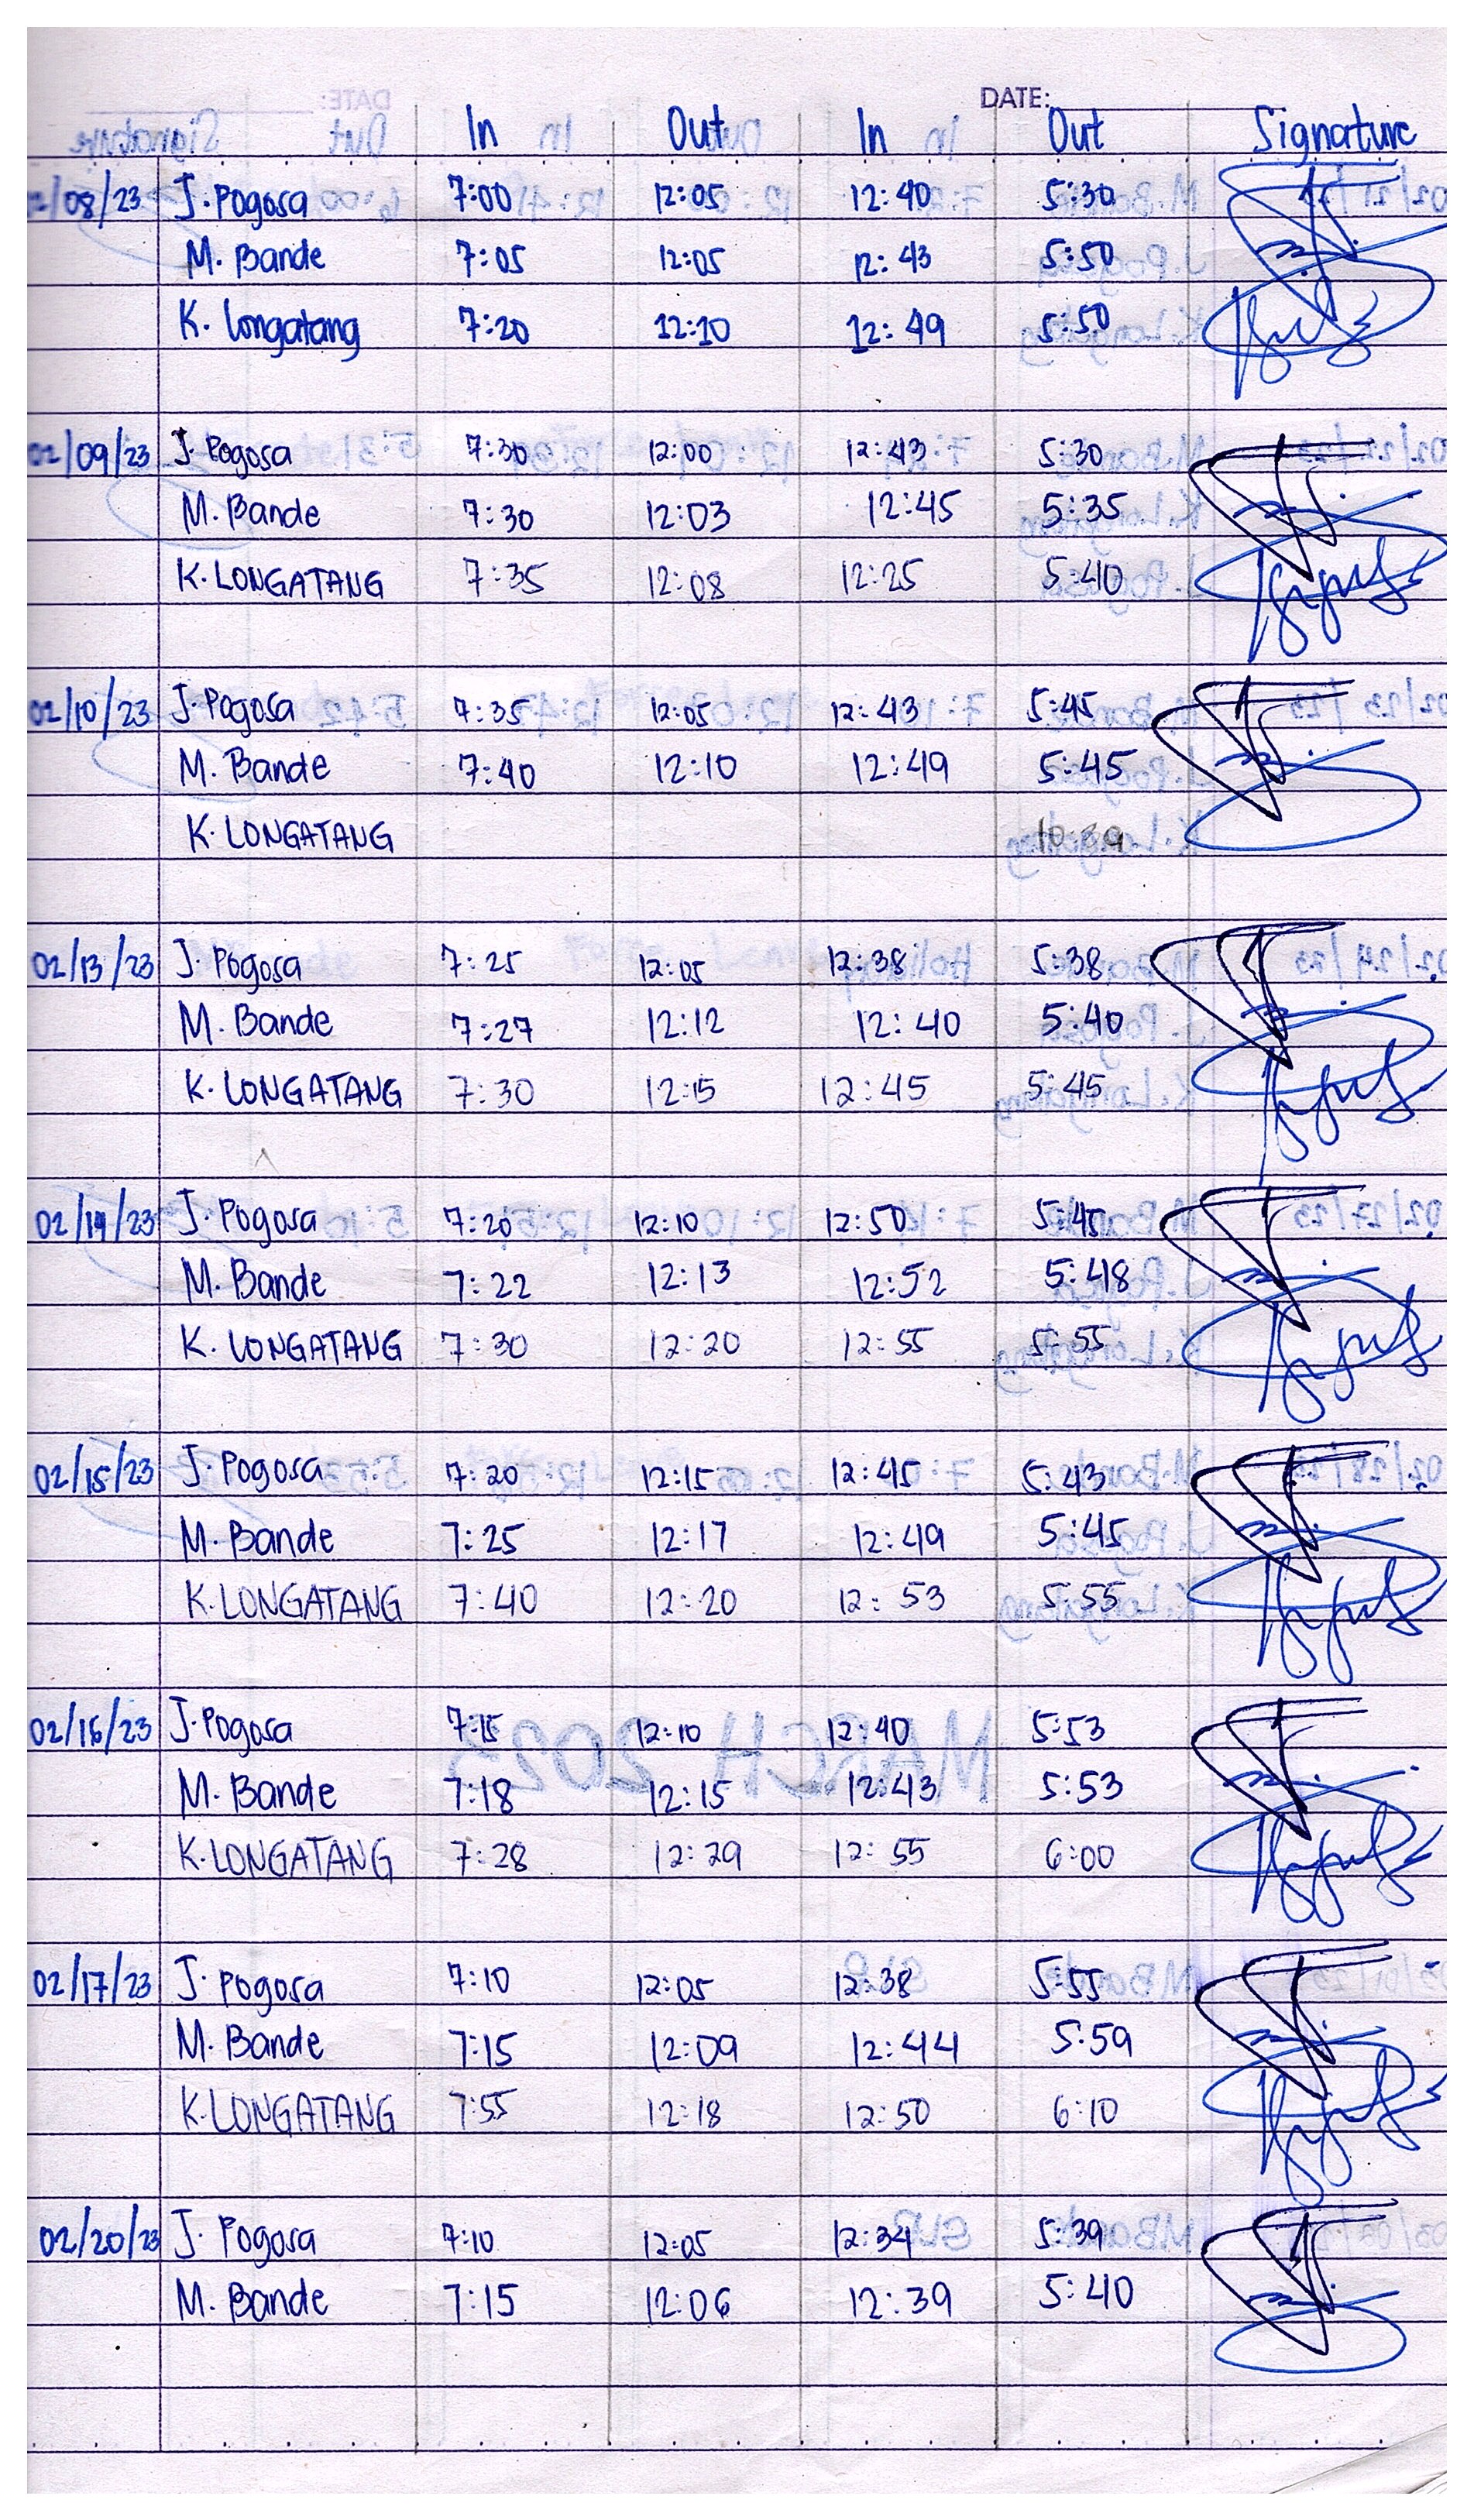 DATE:
In Out In Out Signature
/08/23 J. Pogosa 7:00 12:05 12:40 5:30
M. Bande 7:05 12:05 12:43 5:50
K. Longatang 7:20 12:10 12:49 5:50
02/09/23 J. Pogosa 7:30 12:00 12:43 5:30
M. Bande 7:30 12:03 12:45 5:35
K. LONGATANG 7:35 12:08 12:25 5:40
02/10/23 J. Pogosa 7:35 12:05 12:43 5:45
M. Bande 7:40 12:10 12:49 5:45
K. LONGATANG
02/13/23 J. Pogosa 7:25 12:05 12:38 5:38
M. Bande 7:27 12:12 12:40 5:40
K. LONGATANG 7:30 12:15 12:45 5:45
02/14/23 J. Pogosa 7:20 12:10 12:50 5:45
M. Bande 7:22 12:13 12:52 5:48
K. LONGATANG 7:30 12:20 12:55 5:55
02/15/23 J. Pogosa 7:20 12:15 12:45 5:43
M. Bande 7:25 12:17 12:49 5:45
K. LONGATANG 7:40 12:20 12:53 5:55
02/16/23 J. Pogosa 7:15 12:10 12:40 5:53
M. Bande 7:18 12:15 12:43 5:53
K. LONGATANG 7:28 12:29 12:55 6:00
02/17/23 J. Pogosa 7:10 12:05 12:38 5:55
M. Bande 7:15 12:09 12:44 5:59
K. LONGATANG 7:55 12:18 12:50 6:10
02/20/23 J. Pogosa 7:10 12:05 12:34 5:39
M. Bande 7:15 12:06 12:39 5:40